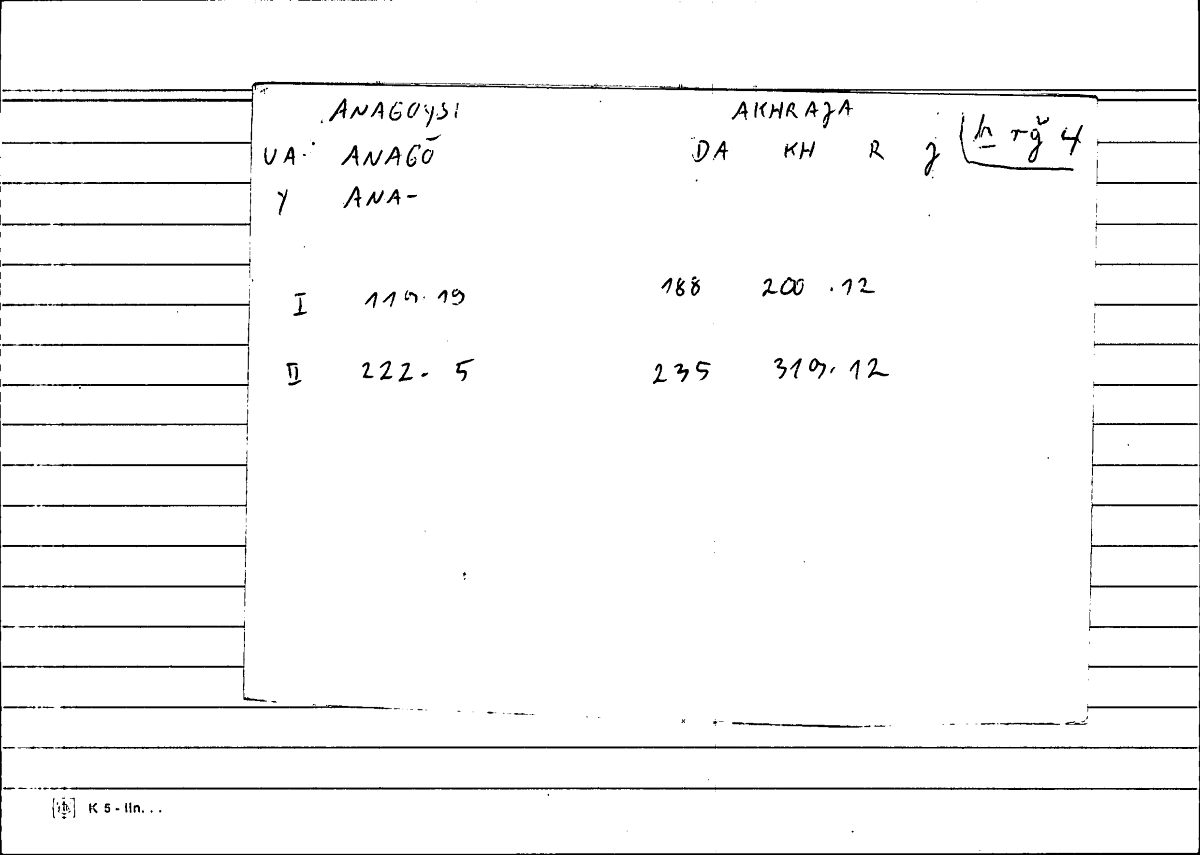 ANAGOYSI AKHRAJA
VA. ANAGŌ DA KH R J ẖ rǧ 4
Y ANA-
I 119.19 188 200.12
II 222.5 235 319.12
K 5 - lin...